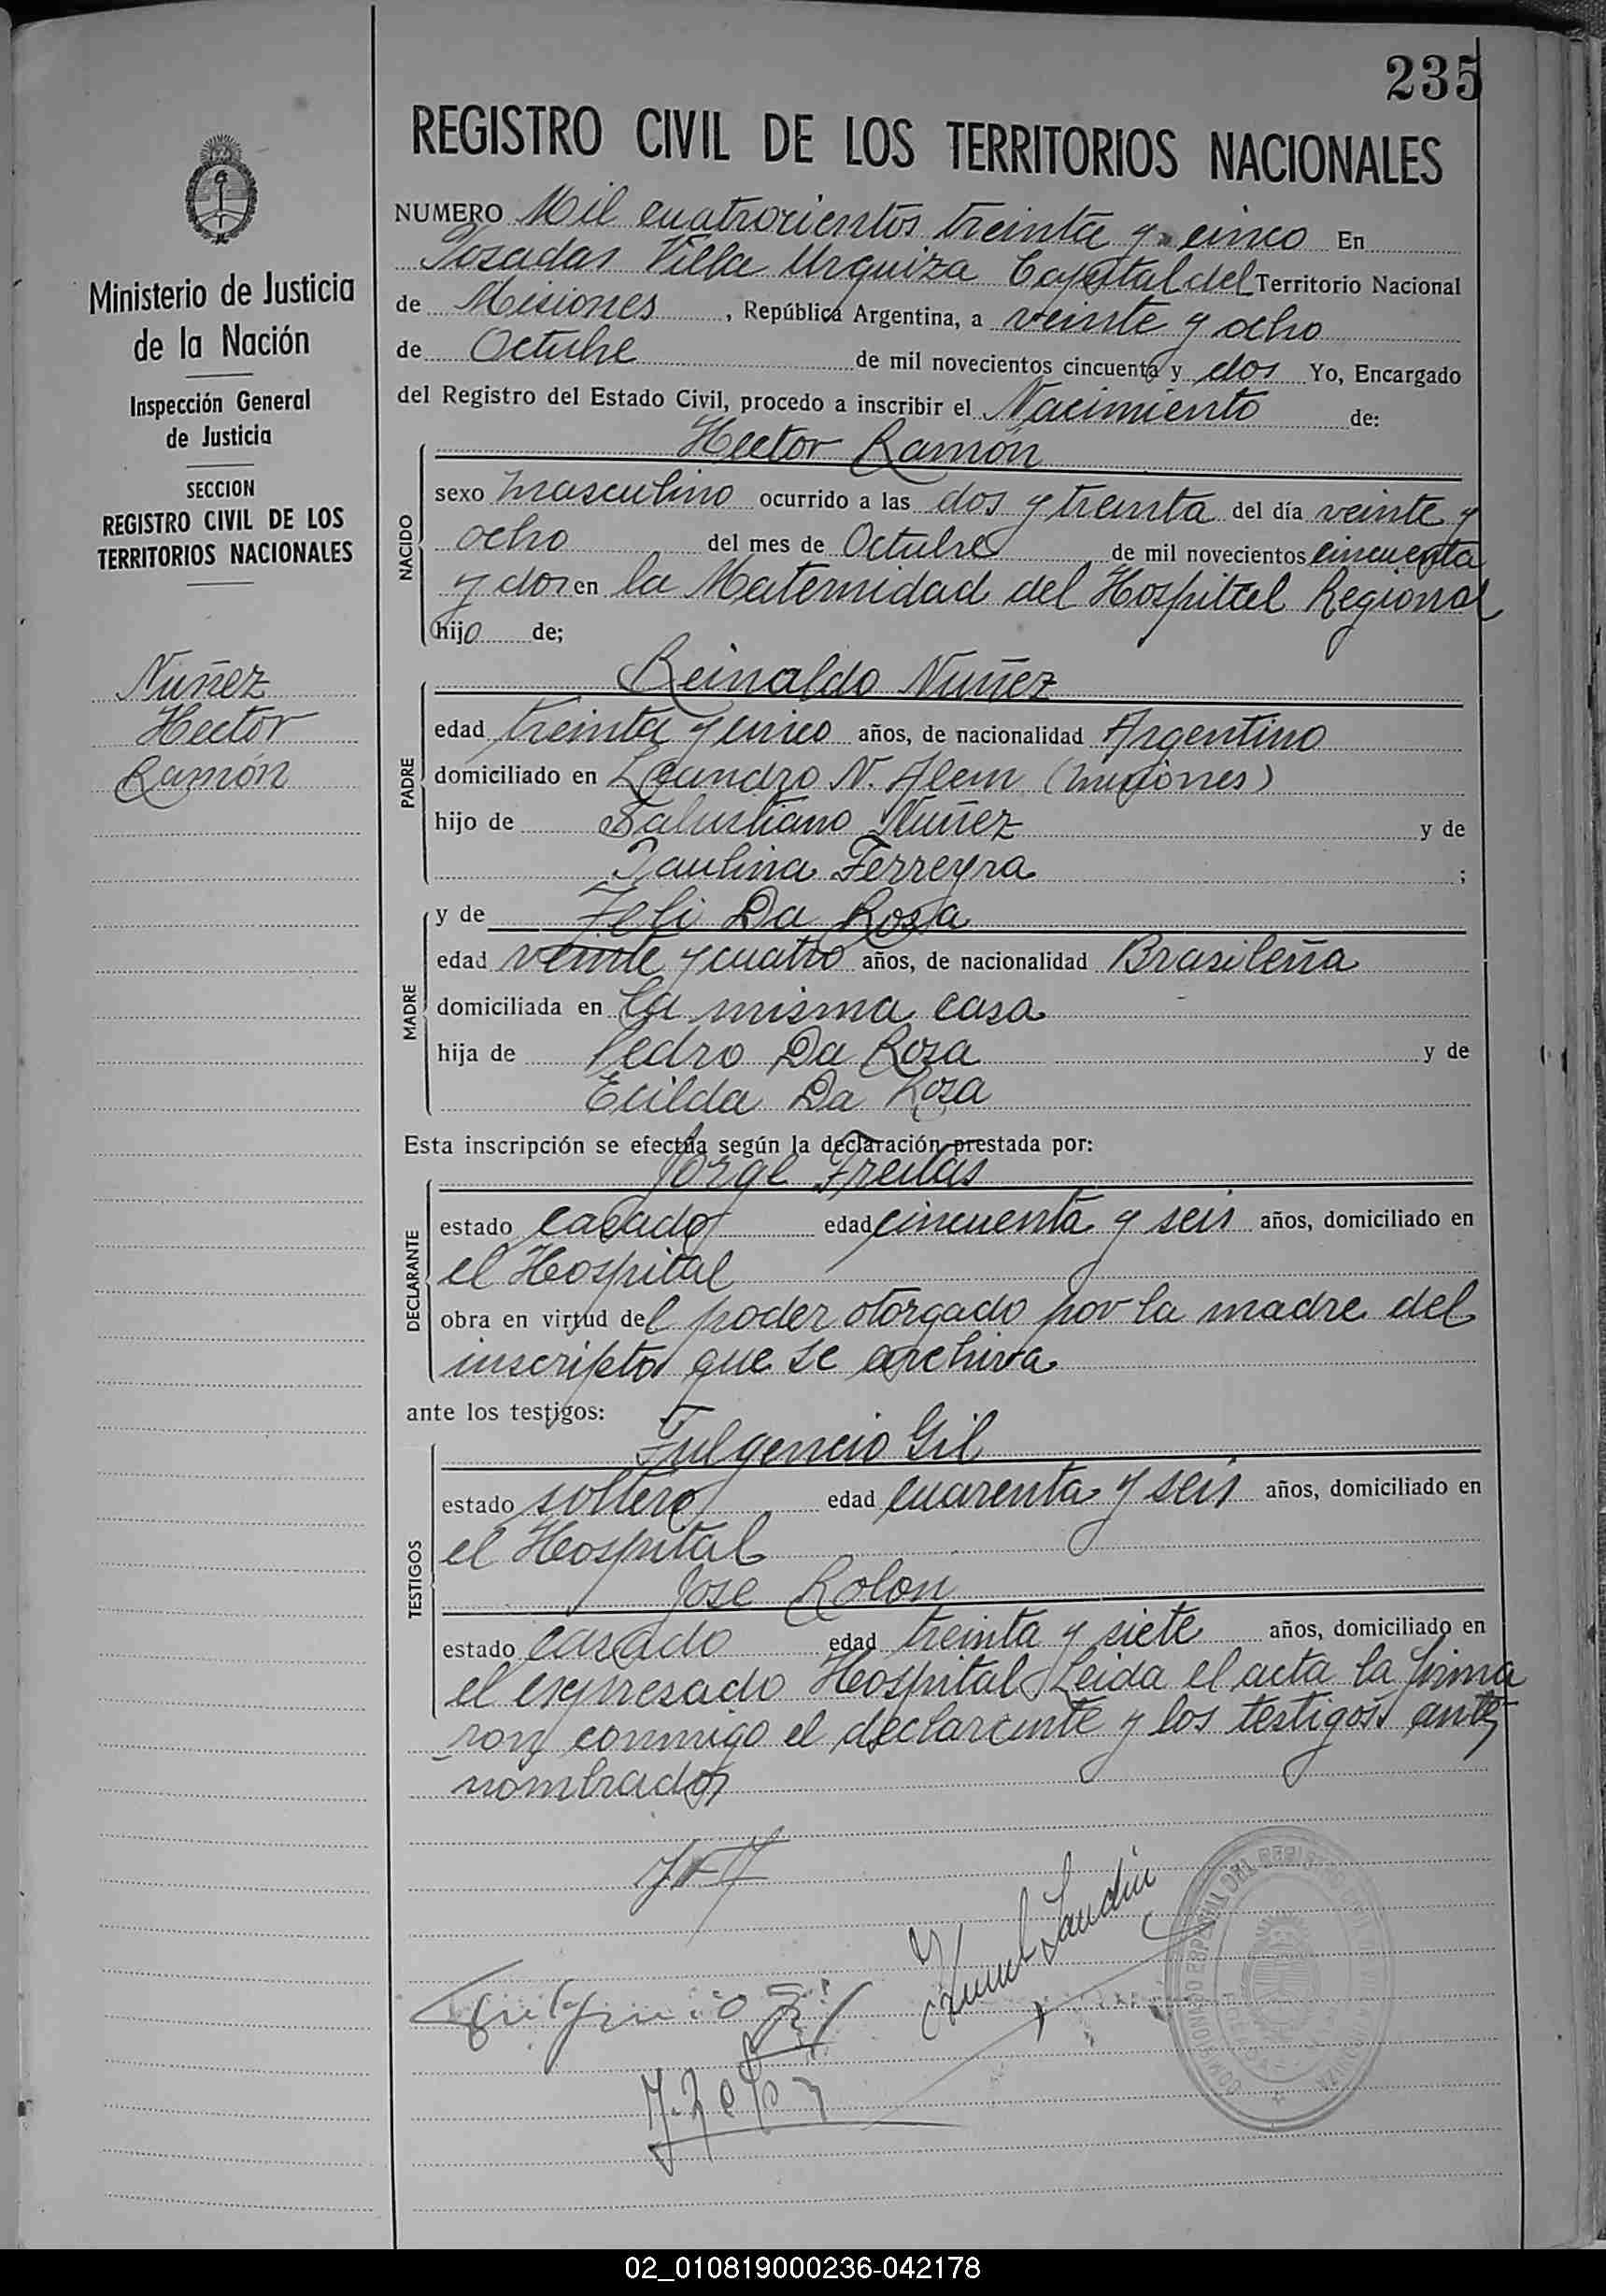 235
REGISTRO CIVIL DE LOS TERRITORIOS NACIONALES
Ministerio de Justicia
de la Nación
Inspección General
de Justicia
SECCION
REGISTRO CIVIL DE LOS
TERRITORIOS NACIONALES
Nuñez
Hector
Ramón
NUMERO Mil cuatrocientos treinta y cinco En
Posadas Villa Urquiza Capital del Territorio Nacional
de Misiones, República Argentina, a veinte y ocho
de Octubre de mil novecientos cincuenta y dos Yo, Encargado
del Registro del Estado Civil, procedo a inscribir el Nacimiento de:
Hector Ramón
NACIDO
sexo masculino ocurrido a las dos y treinta del día veinte y
ocho del mes de Octubre de mil novecientos cincuenta
y dos en la Maternidad del Hospital Regional
hijo de;
Reinaldo Nuñez
PADRE
edad treinta y cinco años, de nacionalidad Argentino
domiciliado en Leandro N. Alem (Misiones)
hijo de Salustiano Nuñez y de
Paulina Ferreyra ;
MADRE
y de Feli Da Rosa
edad veinte y cuatro años, de nacionalidad Brasileña
domiciliada en la misma casa
hija de Pedro Da Rosa y de
Ecilda Da Rosa
Esta inscripción se efectúa según la declaración prestada por:
Jorge Freitas
DECLARANTE
estado casado edad cincuenta y seis años, domiciliado en
el Hospital
obra en virtud del poder otorgado por la madre del
inscripto que se archiva
ante los testigos:
Fulgencio Gil
TESTIGOS
estado soltero edad cuarenta y seis años, domiciliado en
el Hospital
Jose Rolon
estado casado edad treinta y siete años, domiciliado en
el expresado Hospital Leida el acta la firma
ron conmigo el declarante y los testigos ante
nombrados
Fulgencio Gil
J. Rolon
02_010819000236-042178